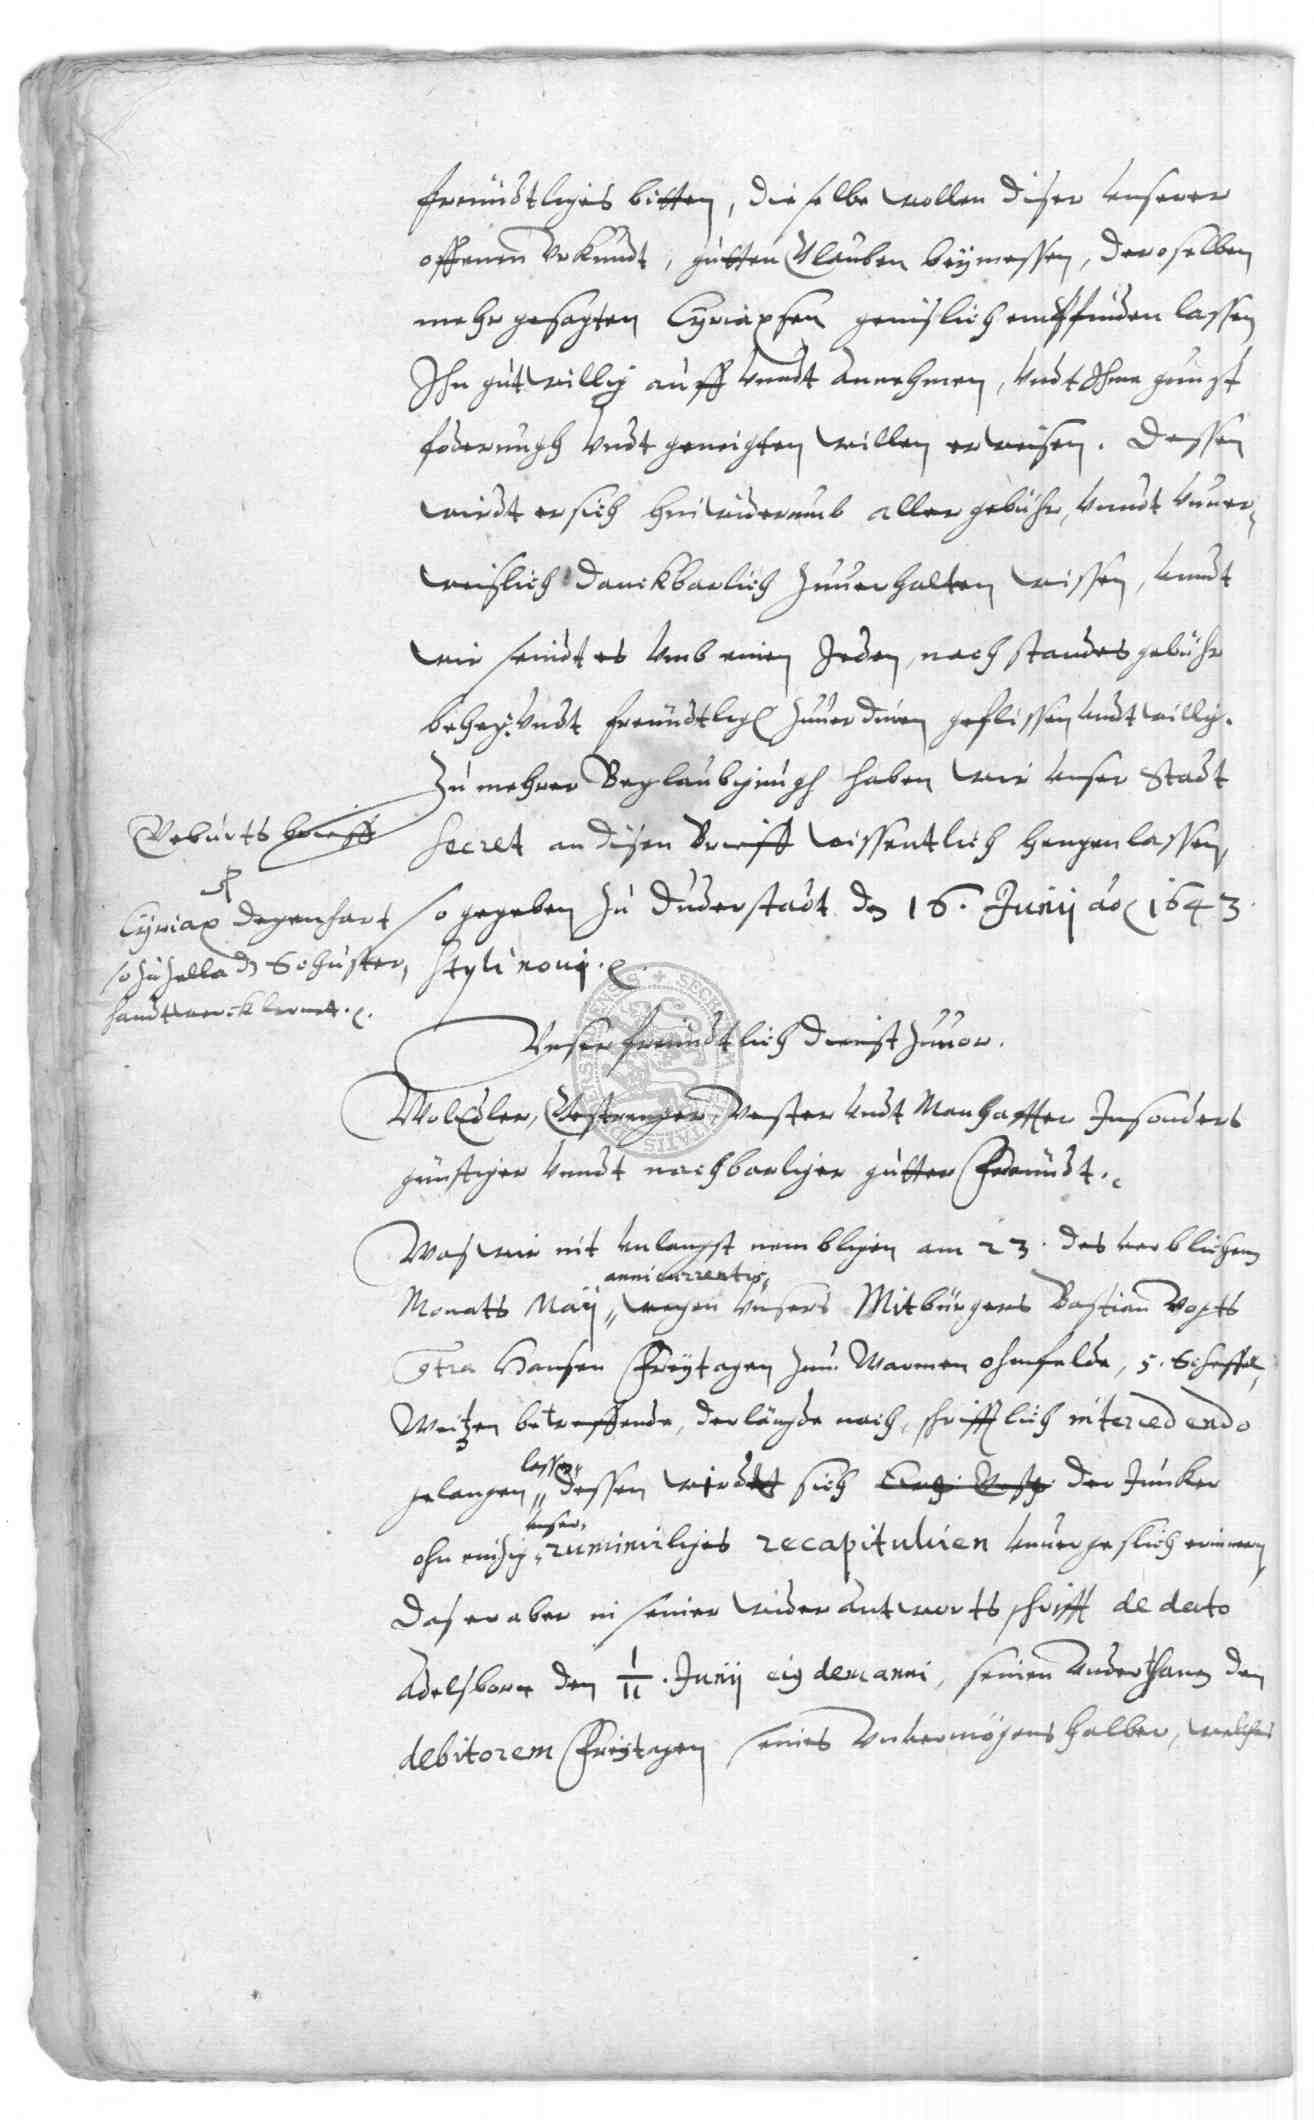 freündtliches bitten, die selbe wollen diser unserer
offenen Urkundt, gutten Glauben beÿmessen, deroselben
mehrgesagten Cyriaxsen genislich empffinden lassen
Ihn gutwillig auff unndt annehmen, undt Ihme gunst
foderungh undt geneigten willen erweisen. Dessen
wirdt er sich hinwiderumb aller gebühr, unndt unuer-
weislich danckbarlich zuuerhalten wissen, unndt
wir seindt es umb einen Jeden, nach standes gebühr
undt freündtlich zuuerdinen geflissen undt willig.
Zu mehrer Beglaubigungh haben wir unser Stadt
Secret an disen Brieff wissentlich hengen lassen,
so gegeben zu Duderstadt den 16. Junij ao 1643.
styli noui.
Geburts brieff
Cyriax Degenhart
so zu Zella d Schuster,
handtwerck lernet.
Unser freundtlich dienst zuuor.
WolEdler, Gestrenger Vester undt Manhaffter Insonders
günstiger unndt nachbarliger gutter Freündt.
Was wir nit unlangst nembligen am 23. des verblichenen
Monats Maij anni currentis, wegen Unsers Mitbürgers Bastian Vogts
contra Hansen Freytagen zuu Warmen ohmfelde, 5. Scheffel
Weitzen betreffende, der längde nach, schrifftlich intercedendo
gelangen lassen, dessen wirdt sich der Juncker
ohn einzig unser, ruminirliges recapituliren unuergeslich erinnern,
Das er aber in seiner widerantworts schrifft de dato
Adelsborn den 1/11. Junij eiusdem anni, seinen Underthanen den
debitorem Freytagen seines Unvermögens halber, welches